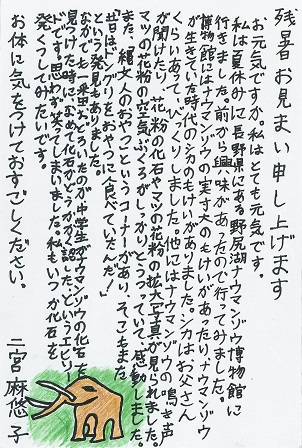 残暑お見まい申し上げます
お元気ですか。私はとても元気です。
私は夏休みに長野県にある野尻湖ナウマンゾウ博物館に
行きました。前から興味があったので行ってみました。
博物館にはナウマンゾウの実寸大のもけいがあったり、ナウマンゾウ
が生きていた時代のシカのもけいがありました。シカはお父さん
くらいあって、びっくりしました。他にはナウマンゾウの鳴き声
が聞けたり、花粉の化石やマツの花粉の拡大写真が見られました。
マツの花粉の空気ぶくろがしっかりとうつっていて、感動しました。
また、「縄文人のおやつ」というコーナーがあり、そこもまた
「昔はドングリをおやつに食べていたんだ!」
という発見もありました。
でも一番おどろいたのが、中学生がナウマンゾウの化石を
見つけた時に、なめて化石かどうかかく認したというエピソー
ドです。思わず笑ってしまいました。私もいつか化石を
発くつしてみたいです。
お体に気をつけておすごしください。
二宮麻悠子